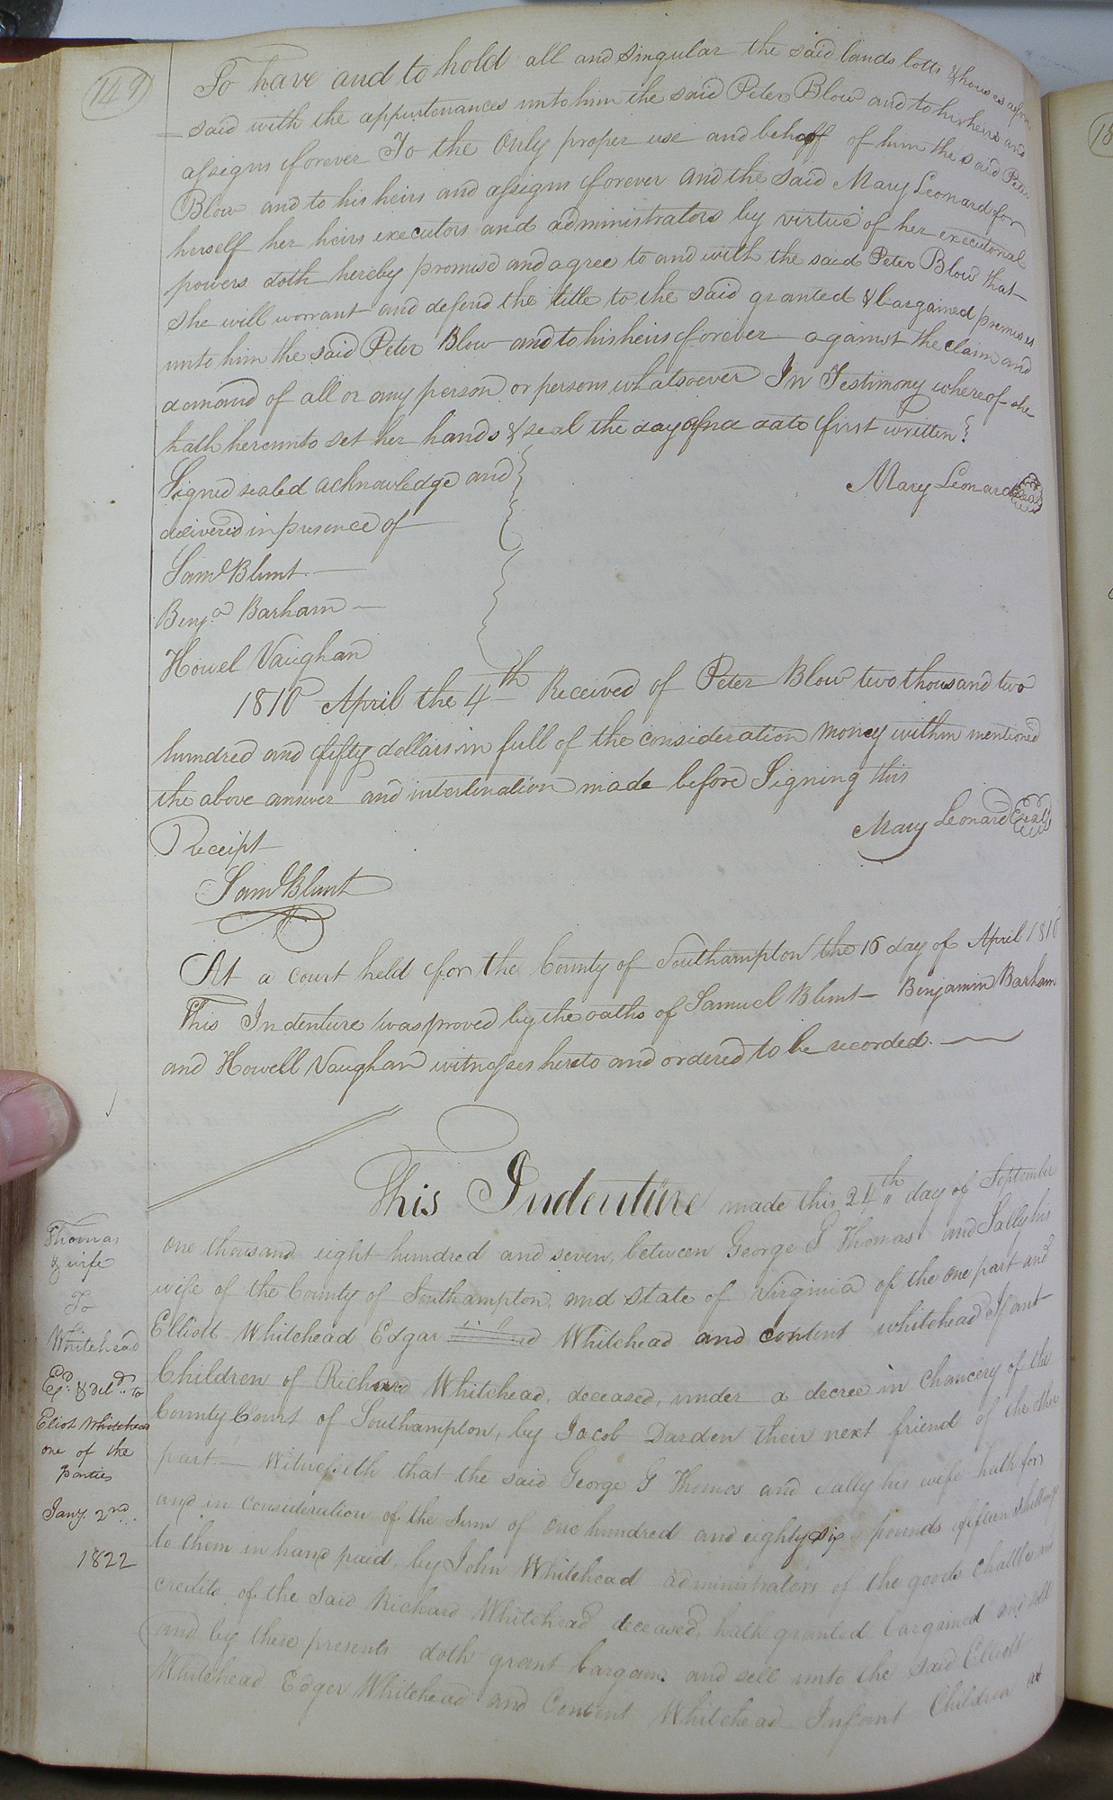 149
To have and to hold all and singular the said lands lotts & houses afore
said with the appurtenances unto him the said Peter Blow and to his heirs and
assigns forever To the Only proper use and behoff of him the said Peter
Blow and to his heirs and assigns forever and the said Mary Leonard for
herself her heirs executors and administrators by virtue of her executorial
powers doth hereby promise and agree to and with the said Peter Blow that
she will warrant and defend the title to the said granted & bargained premises
unto him the said Peter Blow and to his heirs forever against the claim and
demand of all or any person or persons whatsoever In Testimony whereof she
hath hereunto set her hands & seal the day and date first written
Signed sealed acknowledge and
Mary Leonard Seal
delivered in presence of
Saml Blunt
Benja Barham
Howel Vaughan
1810 April the 4th Received of Peter Blow two thousand two
hundred and fifty dollars in full of the consideration money within mentioned
the above and interlination made before Signing this
Receipt
Mary Leonard Seal
Saml Blunt
At a court held for the County of Southampton the 16 day of April 1810
This Indenture was proved by the oaths of Samuel Blunt Benjamin Barham
and Howell Vaughan witnesses hereto and ordered to be recorded.
This Indenture made this 24th day of September
one thousand eight hundred and seven, between George G Thomas and Sally his
wife of the County of Southampton, and state of Virginia of the one part and
Elliott Whitehead Edgar Whitehead and content whitehead Infant
Children of Richard Whitehead, deceased, under a decree in Chancery of the
County Court of Southampton, by Jacob Darden their next friend of the other
part. Witnesseth that the said George G Thomas and Sally his wife hath for
and in consideration of the Sum of one hundred and eighty six pounds fifteen shillings
to them in hand paid, by John Whitehead administrators of the goods chattles and
credits of the said Richard Whitehead deceased, hath granted bargained and sold
and by these presents doth grant bargain and sell unto the said Elliott
Whitehead Edger Whitehead and Content Whitehead Infant Children
Thomas
& wife
To
Whitehead
Exd. & Deld. to
Eliot Whitehead
one of the
parties
Jany. 2nd
1822